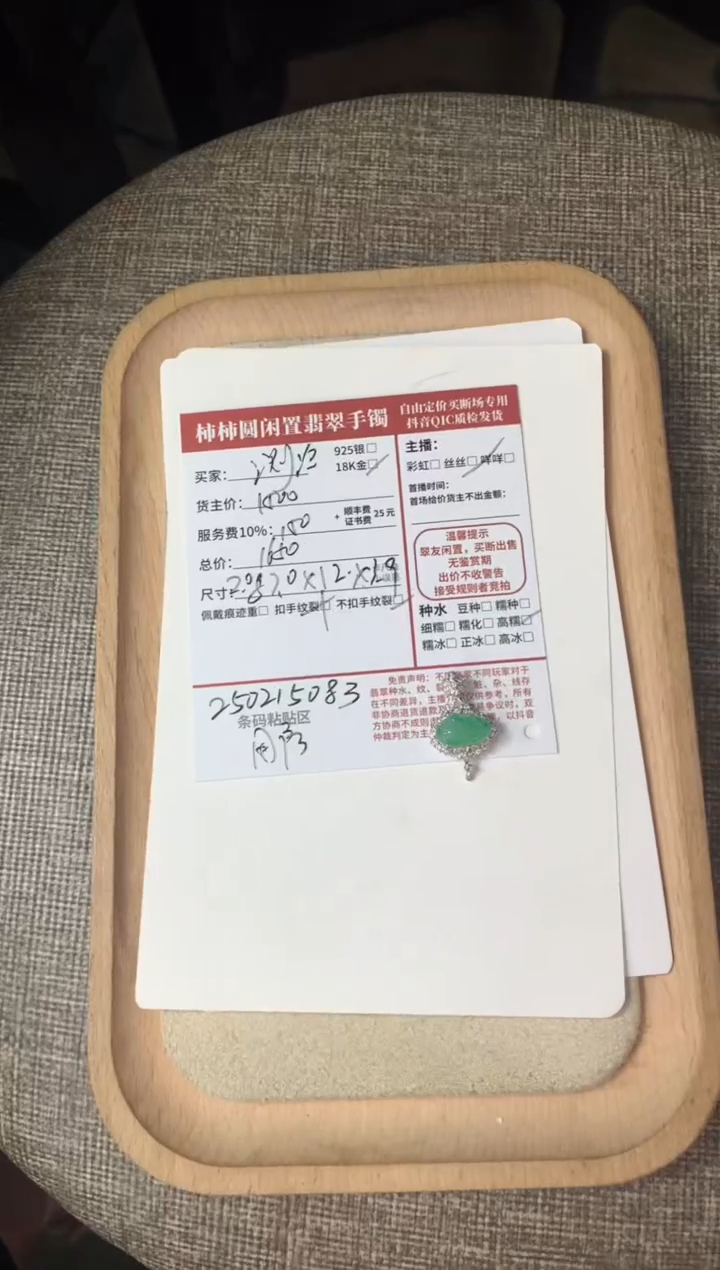 柿柿圆闲置翡翠手镯
自由定价买断场专用
抖音QIC质检发货
买家：
925银□
18K金□
货主价：1500
服务费10%：150
+ 顺丰费 证书费 25元
总价：1650
尺寸：
佩戴痕迹重□ 扣手纹裂□ 不扣手纹裂□
主播：
彩虹□ 丝丝□ 咩咩□
首播时间：
首场给价货主不出金额：
温馨提示
翠友闲置，买断出售
无鉴赏期
出价不收警告
接受规则者竞拍
种水 豆种□ 糯种□
细糯□ 糯化□ 高糯□
糯冰□ 正冰□ 高冰□
250215083
条码粘贴区
免责声明：不同玩家对于
翡翠种水、纹、裂
在不同差异，主播
仅供参考，所有
非协商退货退款及
争议时，双
方协商不成则
以抖音
仲裁判定为主